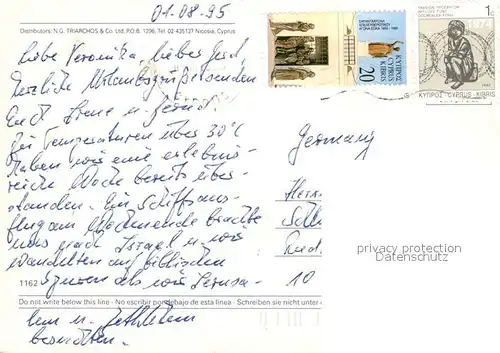 01.08.95
Distributors: N.G. TRIARCHOS & Co. Ltd., P.O.B. 1296, Tel. 02-435137 Nicosia, Cyprus
Liebe Veronika, lieber Gerd,
Herzliche Urlaubsgrüße senden
Euch Irene u. Gerd.
Zu Temperaturen über 30°C
haben wir eine erlebnis-
reiche Woche bereits über-
standen. Ein Schiffsaus-
flug am Wochenende brachte
uns nach Israel u. wir
wandelten auf biblischen
Spuren als wir Jerusa-
1162
Do not write below this line - No escribir por debajo de esta linea - Schreiben sie nicht unter
lem u. Bethlehem
besuchten.
20
ΚΥΠΡΟΣ
CYPRUS
KIBRIS
1c
ΚΥΠΡΟΣ-CYPRUS-KIBRIS
Germany
10
privacy protection
Datenschutz